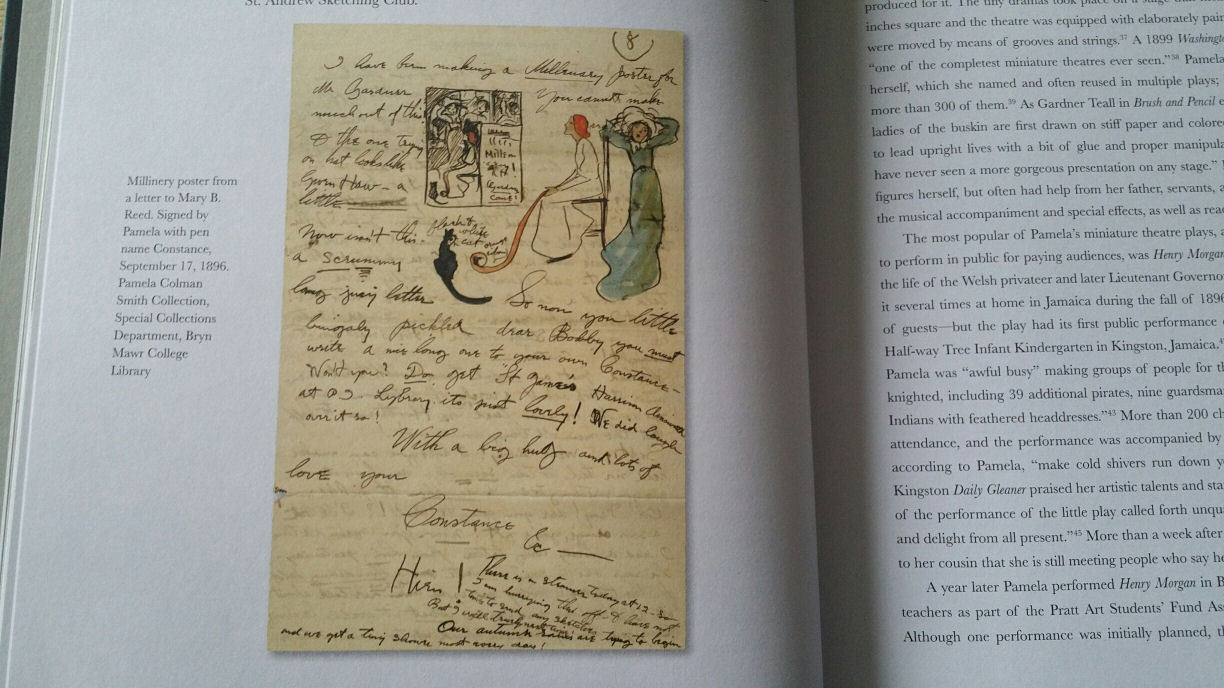 St. Andrew Sketching Club.
Millinery poster from
a letter to Mary B.
Reed. Signed by
Pamela with pen
name Constance,
September 17, 1896.
Pamela Colman
Smith Collection,
Special Collections
Department, Bryn
Mawr College
Library
8
I have been making a Millinery poster for
Mr Gardner
You cannot make
much out of this
& the one trying
on hat looks like
a
little
Now isn't this
a scrummy
long juicy letter
black &
white
cat
So now you little
pickled dear Bobby you must
write a nice long one to your own Constance-
Won't you? Do get St
at Lybrery its just lovely! We did laugh
over it so!
With a big hug and lots of
love your
Constance
Ec —
There is a steamer today at 12-
I am hurrying this off & have not
time to send any sketches
But I will
Our autumn rains are trying to begin
and we get a tiny shower most every day!
produced for it. The tiny dramas took place on a stage that
inches square and the theatre was equipped with elaborately
were moved by means of grooves and strings.37 A 1899
"one of the completest miniature theatres ever seen."38 Pamela
herself, which she named and often reused in multiple plays;
more than 300 of them.39 As Gardner Teall in Brush and Pencil
ladies of the buskin are first drawn on stiff paper and
to lead upright lives with a bit of glue and proper
have never seen a more gorgeous presentation on any stage."
figures herself, but often had help from her father, servants,
the musical accompaniment and special effects, as well as
The most popular of Pamela's miniature theatre plays,
to perform in public for paying audiences, was Henry Morgan
the life of the Welsh privateer and later Lieutenant
it several times at home in Jamaica during the fall of
of guests—but the play had its first public performance
Half-way Tree Infant Kindergarten in Kingston, Jamaica.
Pamela was "awful busy" making groups of people for
knighted, including 39 additional pirates, nine
Indians with feathered headdresses."43 More than 200
attendance, and the performance was accompanied by
according to Pamela, "make cold shivers run down
Kingston Daily Gleaner praised her artistic talents and
of the performance of the little play called forth
and delight from all present."45 More than a week after
to her cousin that she is still meeting people who say
A year later Pamela performed Henry Morgan in
teachers as part of the Pratt Art Students' Fund
Although one performance was initially planned,